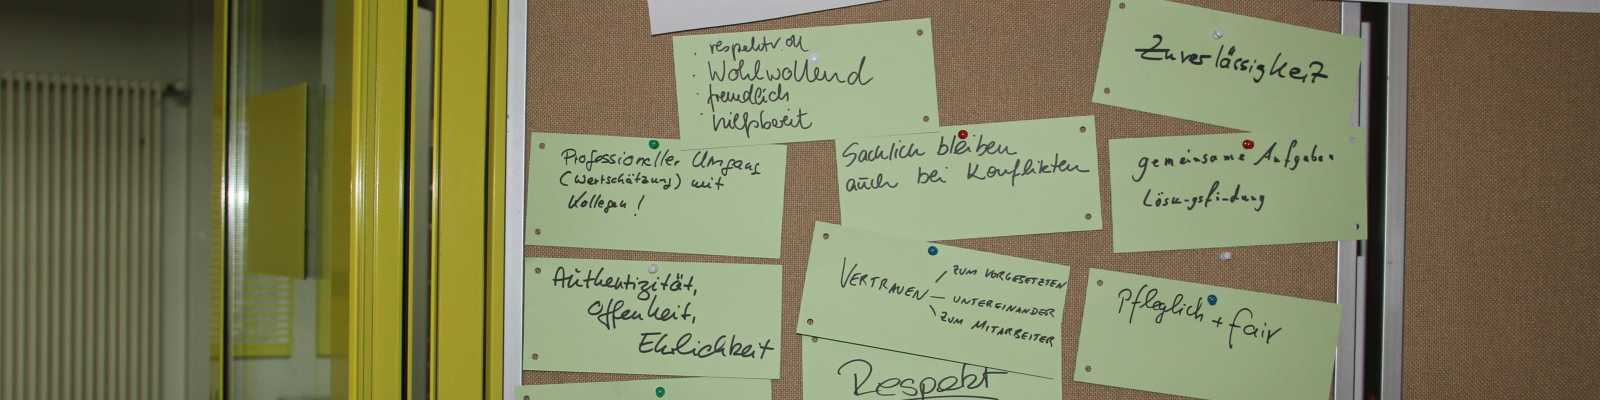 · respektvoll
· Wohlwollend
· freundlich
· hilfsbereit
Zuverlässigkeit
Professioneller Umgang
(Wertschätzung) mit
Kollegen!
Sachlich bleiben
auch bei Konflikten
gemeinsame Aufgaben
Lösungsfindung
Authentizität,
Offenheit,
Ehrlichkeit
VERTRAUEN
ZUM VORGESETZTEN
UNTEREINANDER
ZUM MITARBEITER
Pfleglich + fair
Respekt